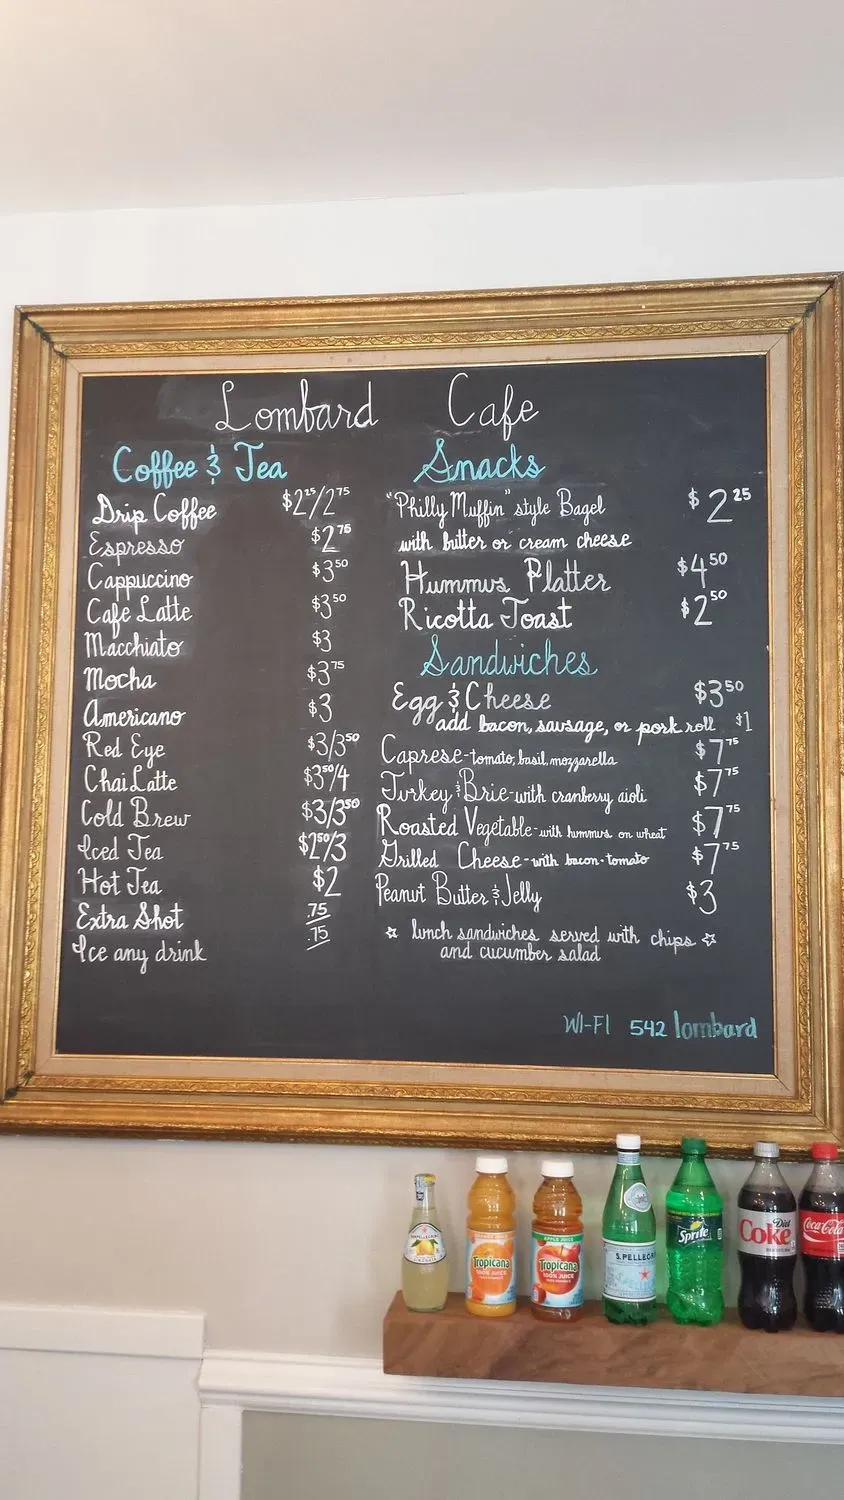 Lombard Cafe
Coffee & Tea
Drip Coffee $2²⁵/2⁷⁵
Espresso $2⁷⁵
Cappuccino $3⁵⁰
Cafe Latte $3⁵⁰
Macchiato $3
Mocha $3⁷⁵
Americano $3
Red Eye $3/3⁵⁰
Chai Latte $3⁵⁰/4
Cold Brew $3/3⁵⁰
Iced Tea $2⁵⁰/3
Hot Tea $2
Extra Shot .75
Ice any drink .75
Snacks
"Philly Muffin" style Bagel $2²⁵
with butter or cream cheese
Hummus Platter $4⁵⁰
Ricotta Toast $2⁵⁰
Sandwiches
Egg & Cheese $3⁵⁰
add bacon, sausage, or pork roll $1
Caprese-tomato, basil, mozzarella $7⁷⁵
Turkey & Brie-with cranberry aioli $7⁷⁵
Roasted Vegetable-with hummus on wheat $7⁷⁵
Grilled Cheese-with bacon·tomato $7⁷⁵
Peanut Butter & Jelly $3
☆ lunch sandwiches served with chips ☆
and cucumber salad
WI-FI 542 lombard
Tropicana
100% JUICE
APPLE JUICE
Tropicana
100% JUICE
S.PELLEGRINO
Sprite
Diet
Coke
Coca-Cola